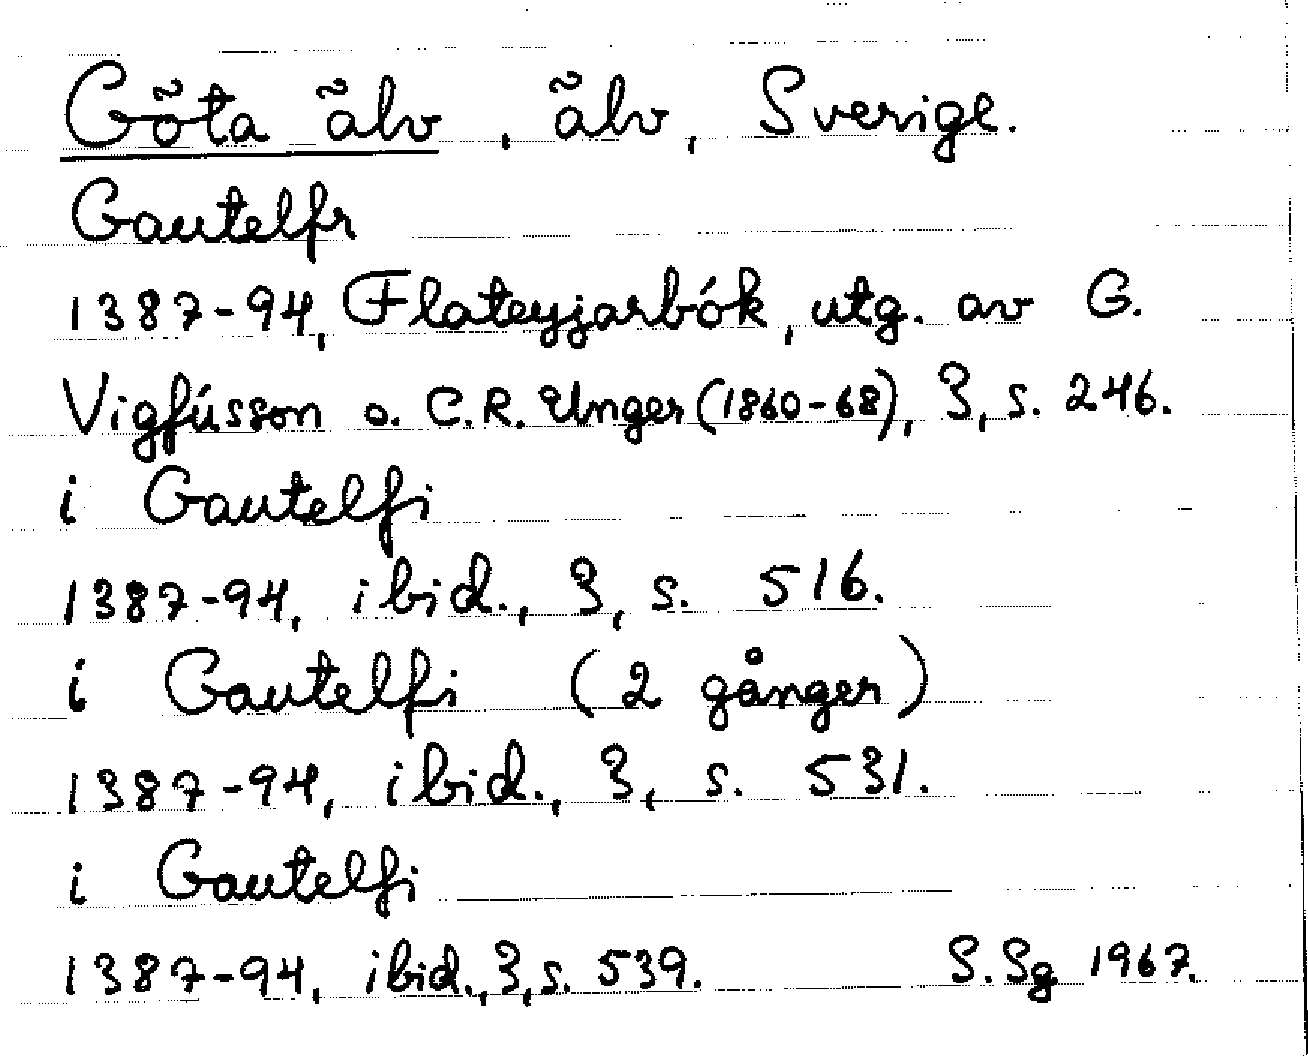 Göta älv, älv, Sverige.
Gautelfr
1387-94, Flateyjarbók, utg. av G.
Vigfússon o. C.R. Unger (1860-68), 3, s. 246.
i Gautelfi
1387-94, ibid., 3, s. 516.
i Gautelfi (2 gånger)
1387-94, ibid., 3, s. 531.
i Gautelfi
1387-94, ibid., 3, s. 539. S. Sg 1967.